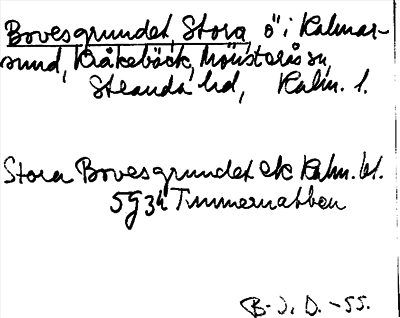 Bovesgrundet, Stora, ö i Kalmar-
sund, Kråkebäck, Mönsterås sn,
Stranda hd, Kalm. l.
Stora Bovesgrundet ek Kalm. bl.
5g3h Timmernabben
B-J. D. -55.